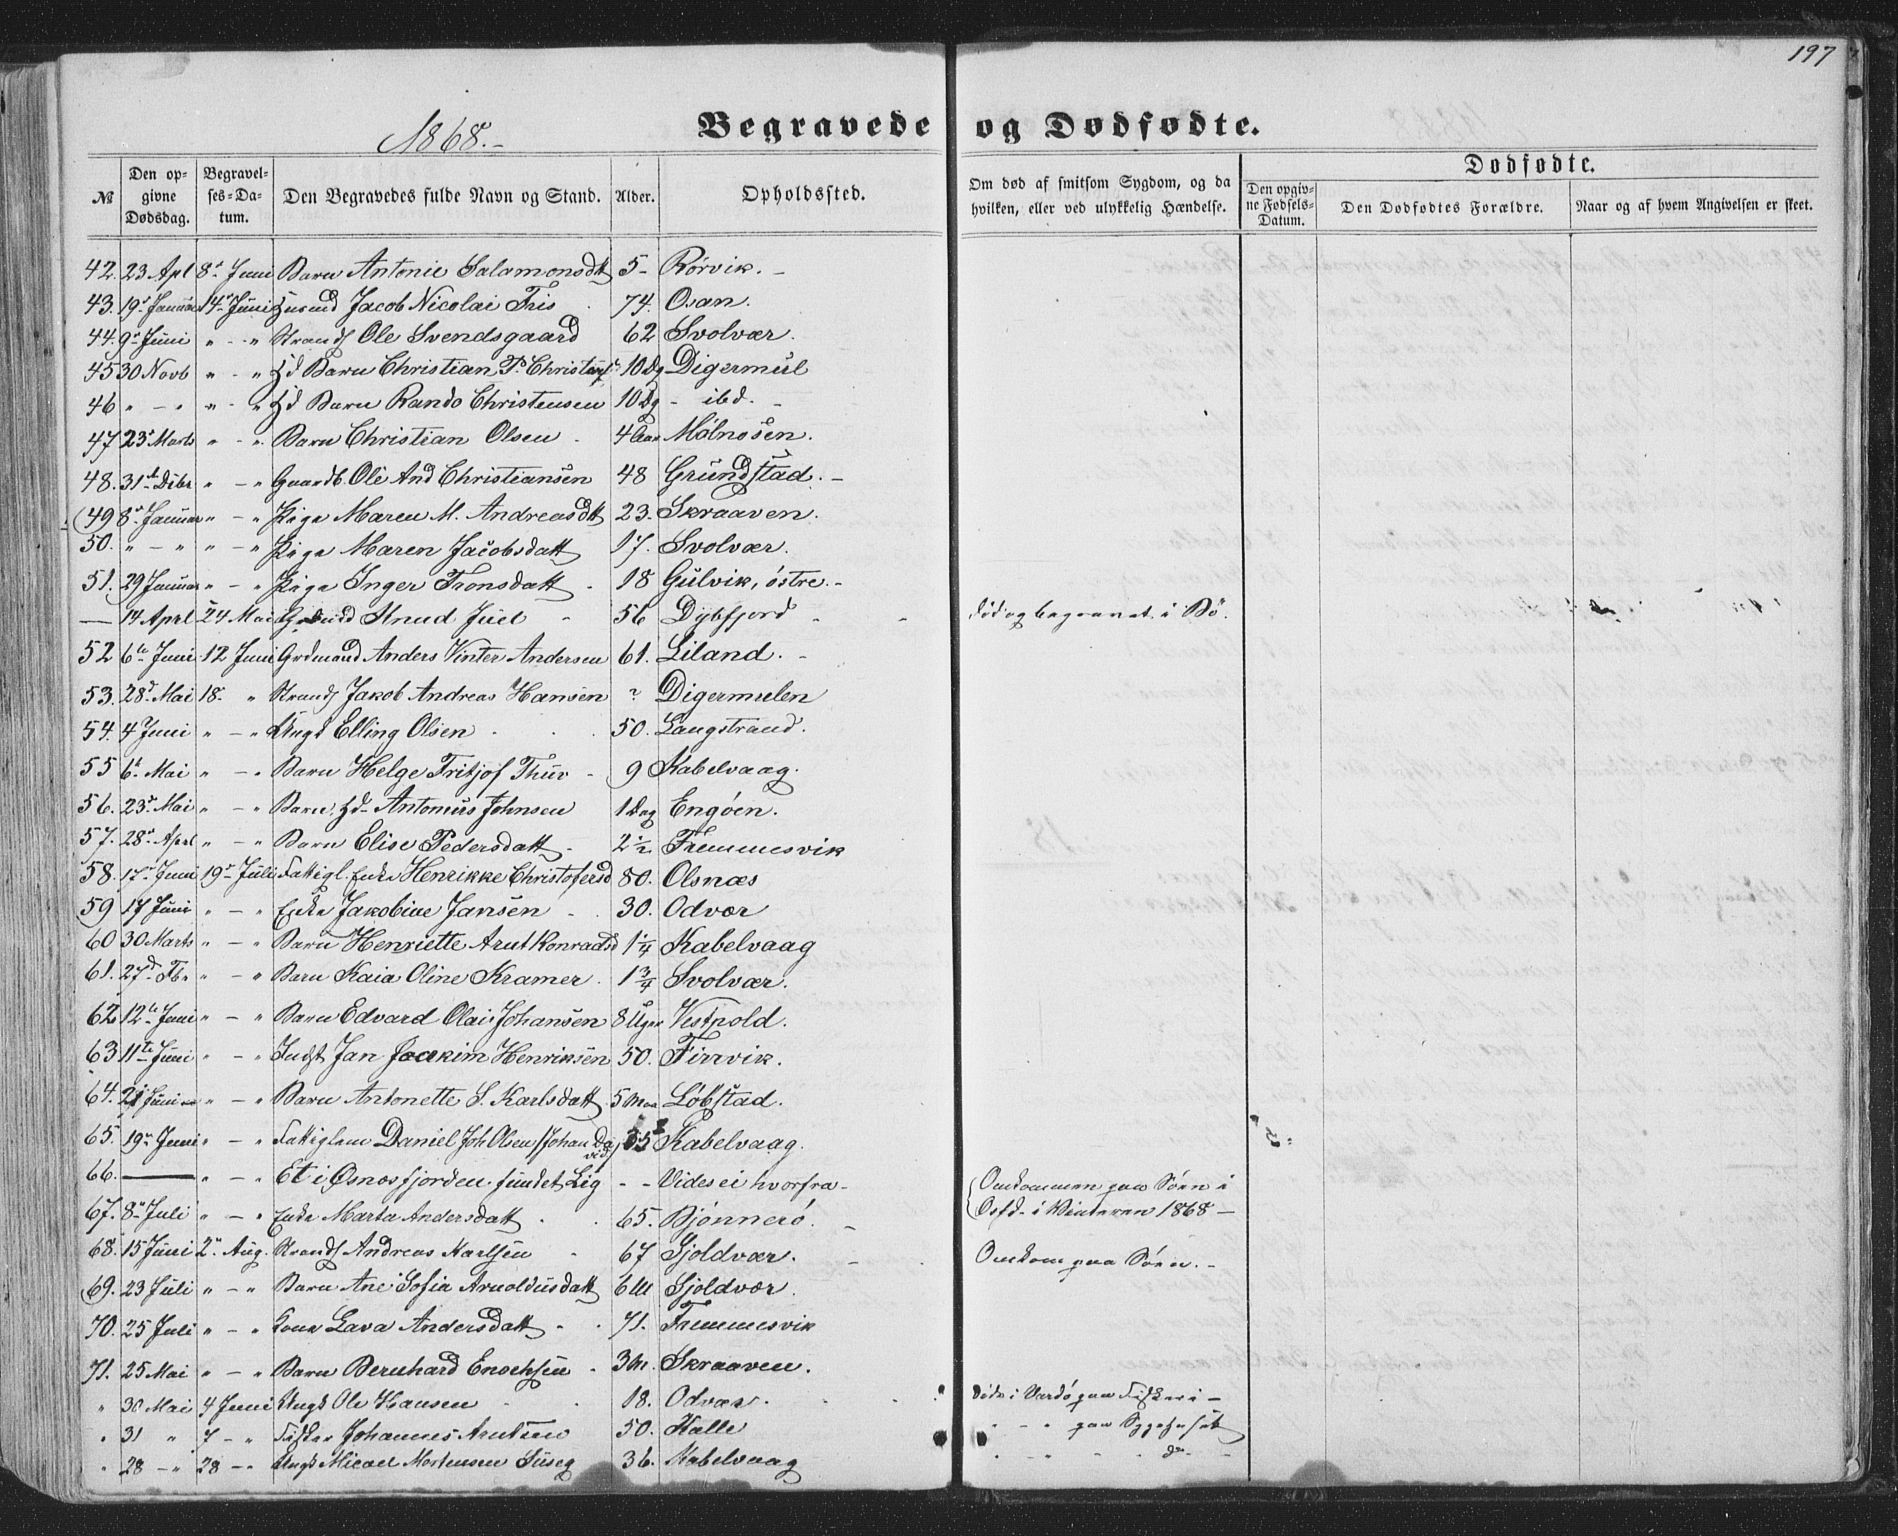 197
1868.-
Begravede og Dødfødte.
№ Den opgivne Dødsdag. Begravelses-Datum. Den Begravedes fulde Navn og Stand. Alder. Opholdssted. Om død af smitsom Sygdom, og da hvilken, eller ved ulykkelig Hændelse. Dødfødte.
Den opgivne Fødsels-Datum. Den Dødfødtes Forældre. Naar og af hvem Angivelsen er skeet.
42. 23 Apl 8de Juni Barn Antonie Salamonsdtt 5- Rørvik. -
43. 19 Januar 14 Juni Jacob Nicolai Friis 74. Osan.
44. 9 Juni " - " Strands Ole Svendsgaard 62 Svolvær.
45 30 Novb " - " Hd Barn Christian P. 10 Dg Digermul
46 " - " " - " Hd Barn Rando Christensen 10 Dg - ibd. -
47 23 Marts " - " Barn Christian Olsen - 4 Aar Molnosen.
48. 31te Dcbr " - " Gaardb. Ole And Christiansen 48 Grundstad. -
49 8 Januar " - " Pige Maren M. Andreasdtt 23. Skraaven.
50. " - " " - " Pige Maren Jacobsdatt 17. Svolvær.
51. 29 Januar " - " Pige Inger Tronsdatt - 18 Gulvik, østre. -
— 14 Aprl 24 Mai Knud Juel - 56 Dybfjord - død og begravet i Bø.
52 6te Juni 12 Juni Grdmand Anders Vinter Andersen 61. Liland. -
53. 28d Mai 18 " Strands Jakob Andreas Hansen ? Digermulen
54. 4 Juni " - " Ungk Elling Olsen - 50. Langstrand.
55 6t Mai " - " Barn Helge Fritjof Thuv - 9 Kabelvaag.
56. 23d Mai " - " Barn Hd Antonius Johnsen 1 Dag Engøen.
57. 28 Aprl " - " Barn Elise Pedersdatt - 2 1/2 Fremmesvik
58. 17 Juni 19 Juli Fattigl. Enke Henrikke Christofersd 80. Olsnæs
59 17 Juni " - " Enke Jakobine Jansen - 30. Odvær
60 30 Marts " - " Barn Henriette Arntkonradsd 1 1/4 Kabelvaag
61. 27d Fbr " - " Barn Kaia Oline Kramer. 1 3/4 Svolvær.
62 12te Juni " - " Barn Edvard Olai Johansen 8 Uger Vestpold.
63 11te Juni " - " Indst Jan Joakim Henriksen 50. Firrvik.
64. 21 Juni " - " Barn Antonette S. Karlsdatt 5 Maa Løbstad.
65. 19 Juni " - " Fattiglem Daniel Joh Olsen /Johan David/ 55 Kabelvaag.
66. — " - " Et i Øsnesfjorden fundet Lig - - Vides ei hvorfra - Omkommen paa Søen i
67. 8 Juli " - " Enke Marta Andersdatt - 65. Bjønnerø. - Ostd- i Vinteren 1868 -
68. 15 Juni 2 Aug. Strands Andreas Karlsen - 67 Gjoldvær. - Omkom paa Søen. -
69. 23 Juli " - " Barn Ane Sofia Arnoldusdatt 6 M Gjoldvær.
70. 25 Juli " - " Kone Lava Andersdatt - 71. Fremmesvik
71. 25 Mai " - " Barn Bernhard Enochsen - 3 M. Skraaven.
" 30 Mai 4 Juni Ungk Ole Hansen - 18. Odvær. døde i Vardø paa Fiskeri -
" 31 " 7 - " Fisker Johannes Arntsen 50. Kalle " - " paa Sygehuset
" 28 - " 28 - " Ungk Micael Mortensen 36. Kabelvaag " - " - - do -